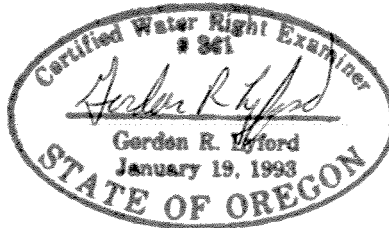 Certified Water Right Examiner
# 361
Gordon R Lyford
Gordon R. Lyford
January 19, 1993
STATE OF OREGON